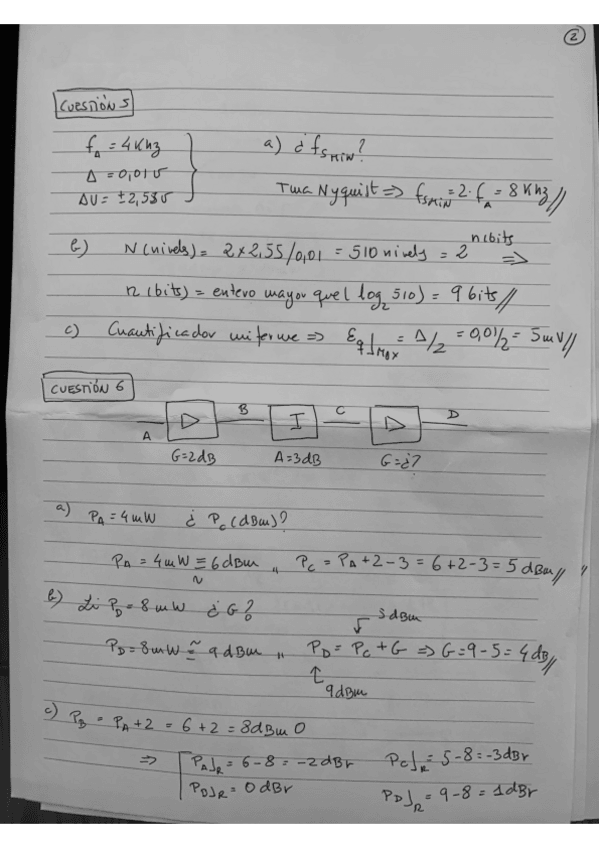 2
CUESTIÓN 5
f_A = 4 Khz
Δ = 0,01 v
ΔU = ±2,55 v
a) ¿ f_SMIN?
Tma Nyquist => f_SMIN = 2·f_A = 8 Khz //
b) N (nivels) = 2x2,55/0,01 = 510 nivels = 2^n(bits) =>
n (bits) = entero mayor que ( log_2 510) = 9 bits //
c) Cuantificador uniforme => ε_q]_MAX = Δ/2 = 0,01/2 = 5mV //
CUESTIÓN 6
A B C D
▷ I ▷
G=2dB A=3dB G=¿?
a) P_A = 4mW ¿ P_C (dBm)?
P_A = 4mW ≅ 6dBm ,, P_C = P_A + 2 - 3 = 6 + 2 - 3 = 5 dBm //
b) Si P_D = 8mW ¿ G?
5 dBm
P_D = 8mW ≅ 9 dBm ,, P_D = P_C + G => G = 9 - 5 = 4dB //
9dBm
c) P_B = P_A + 2 = 6 + 2 = 8dBm 0
=> P_A]_R = 6 - 8 = -2dBr P_C]_R = 5 - 8 = -3dBr
P_B]_R = 0 dBr P_D]_R = 9 - 8 = 1dBr